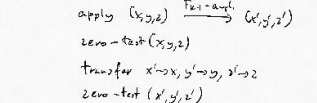 apply (x,y,z) F_{k-1}-ampl. → (x',y',z')
zero-test (x,y,z)
transfer x'→x, y'→y, z'→z
zero-test (x',y',z')